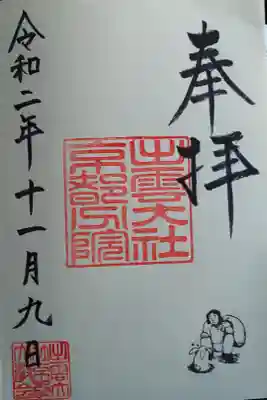 奉拝
出雲大社
京都分院
令和二年十一月九日